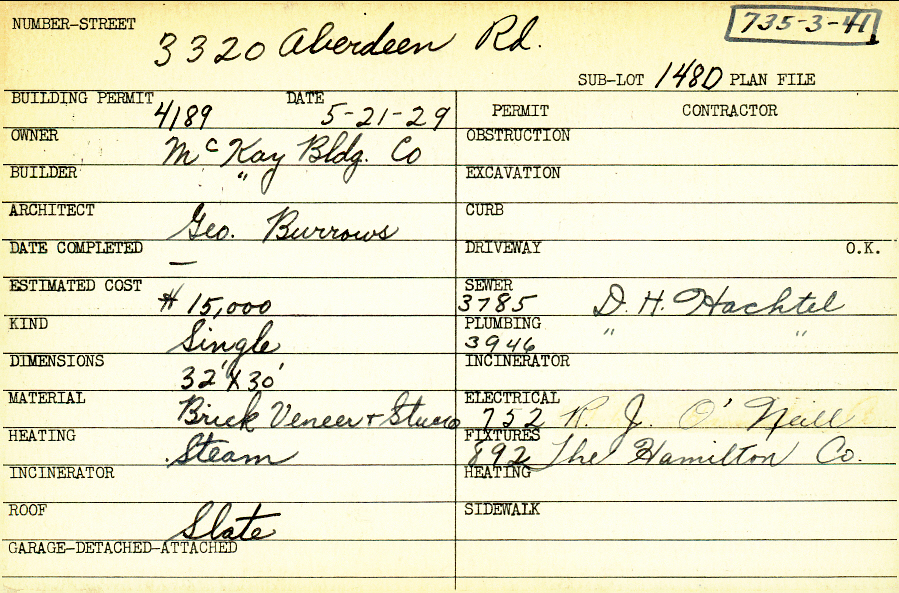 NUMBER-STREET 3320 Aberdeen Rd. 735-3-41
SUB-LOT 148D PLAN FILE
BUILDING PERMIT 4189 DATE 5-21-29
OWNER McKay Bldg. Co
BUILDER "
ARCHITECT Geo. Burrows
DATE COMPLETED —
ESTIMATED COST $15,000
KIND Single
DIMENSIONS 32' X 30'
MATERIAL Brick Veneer + Stucco
HEATING Steam
INCINERATOR
ROOF Slate
GARAGE-DETACHED-ATTACHED
PERMIT CONTRACTOR
OBSTRUCTION
EXCAVATION
CURB
DRIVEWAY O.K.
SEWER 3785 D. H. Hachtel
PLUMBING 3946 " "
INCINERATOR
ELECTRICAL 752 R. J. O'Neill
FIXTURES 892 The Hamilton Co.
HEATING
SIDEWALK